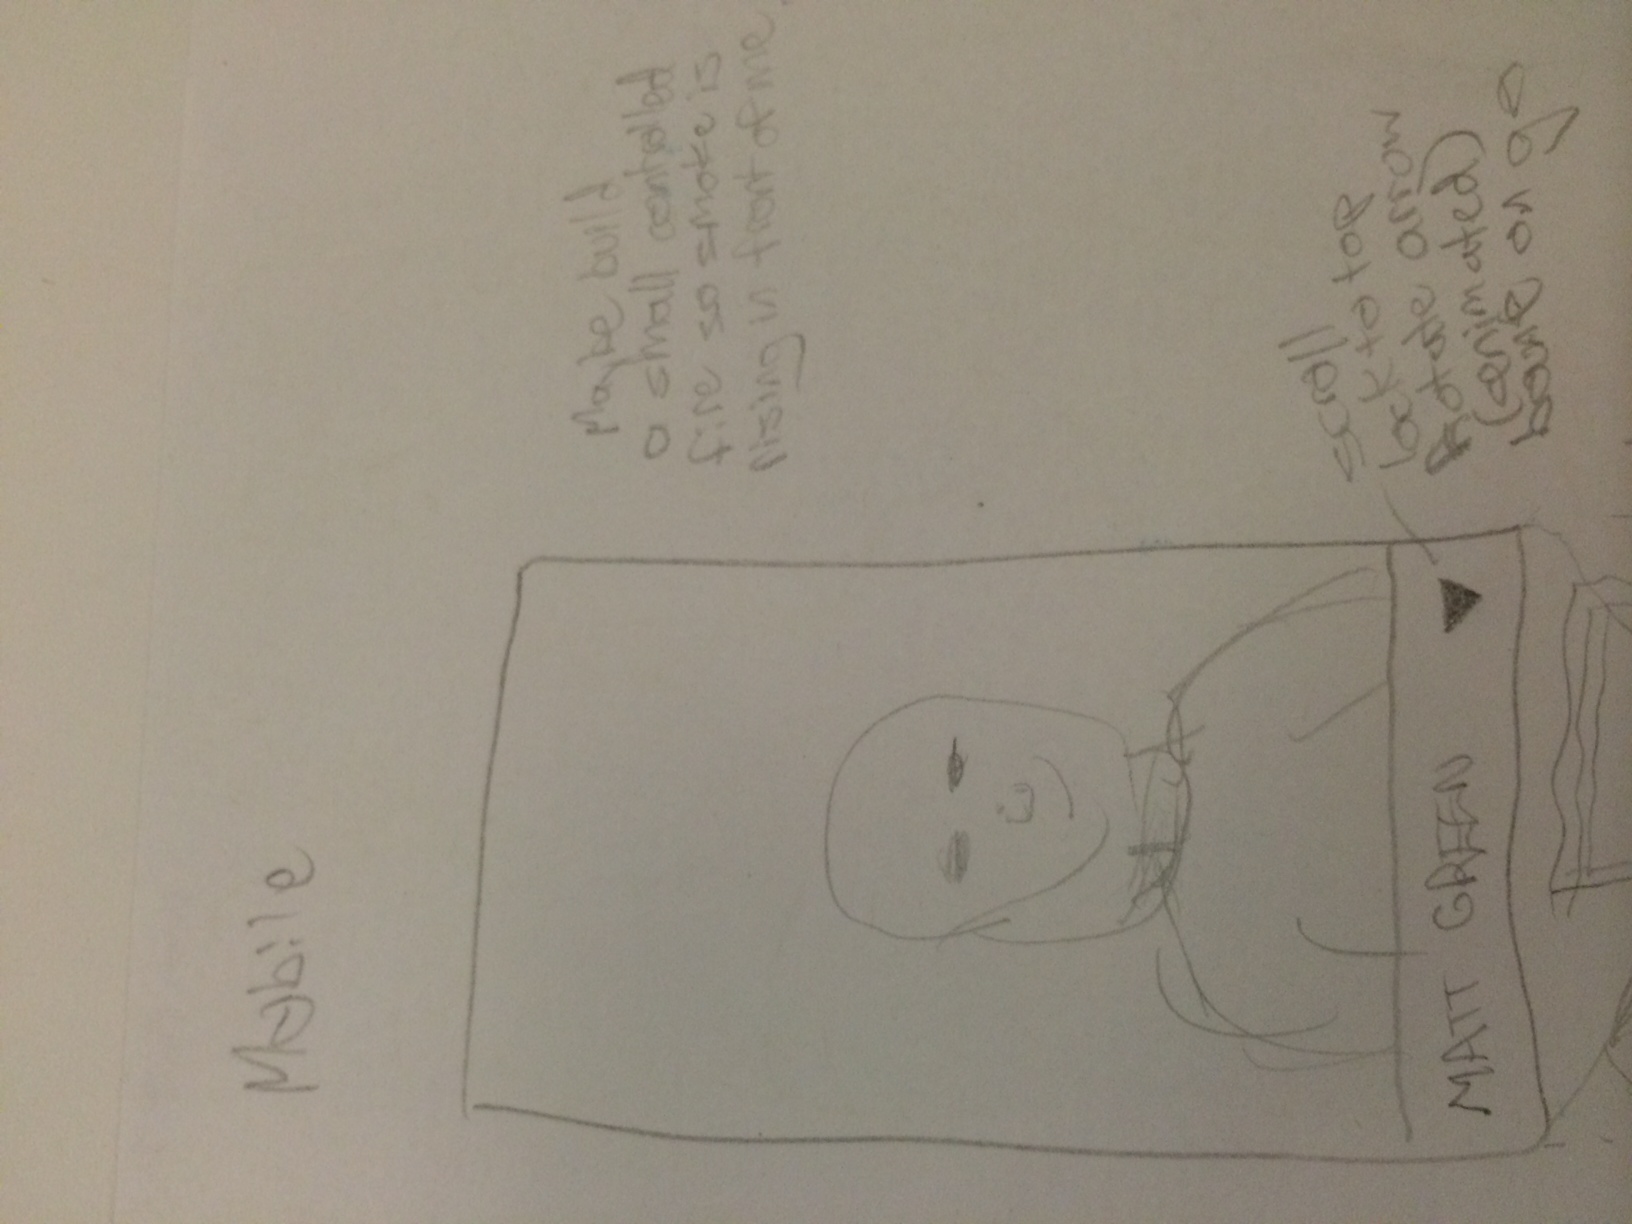 Mobile
Maybe build
a small controlled
fire so smoke is
rising in front of me.
MATT GREEN
scroll
lock to top
Rotate arrow
(animated)
on go